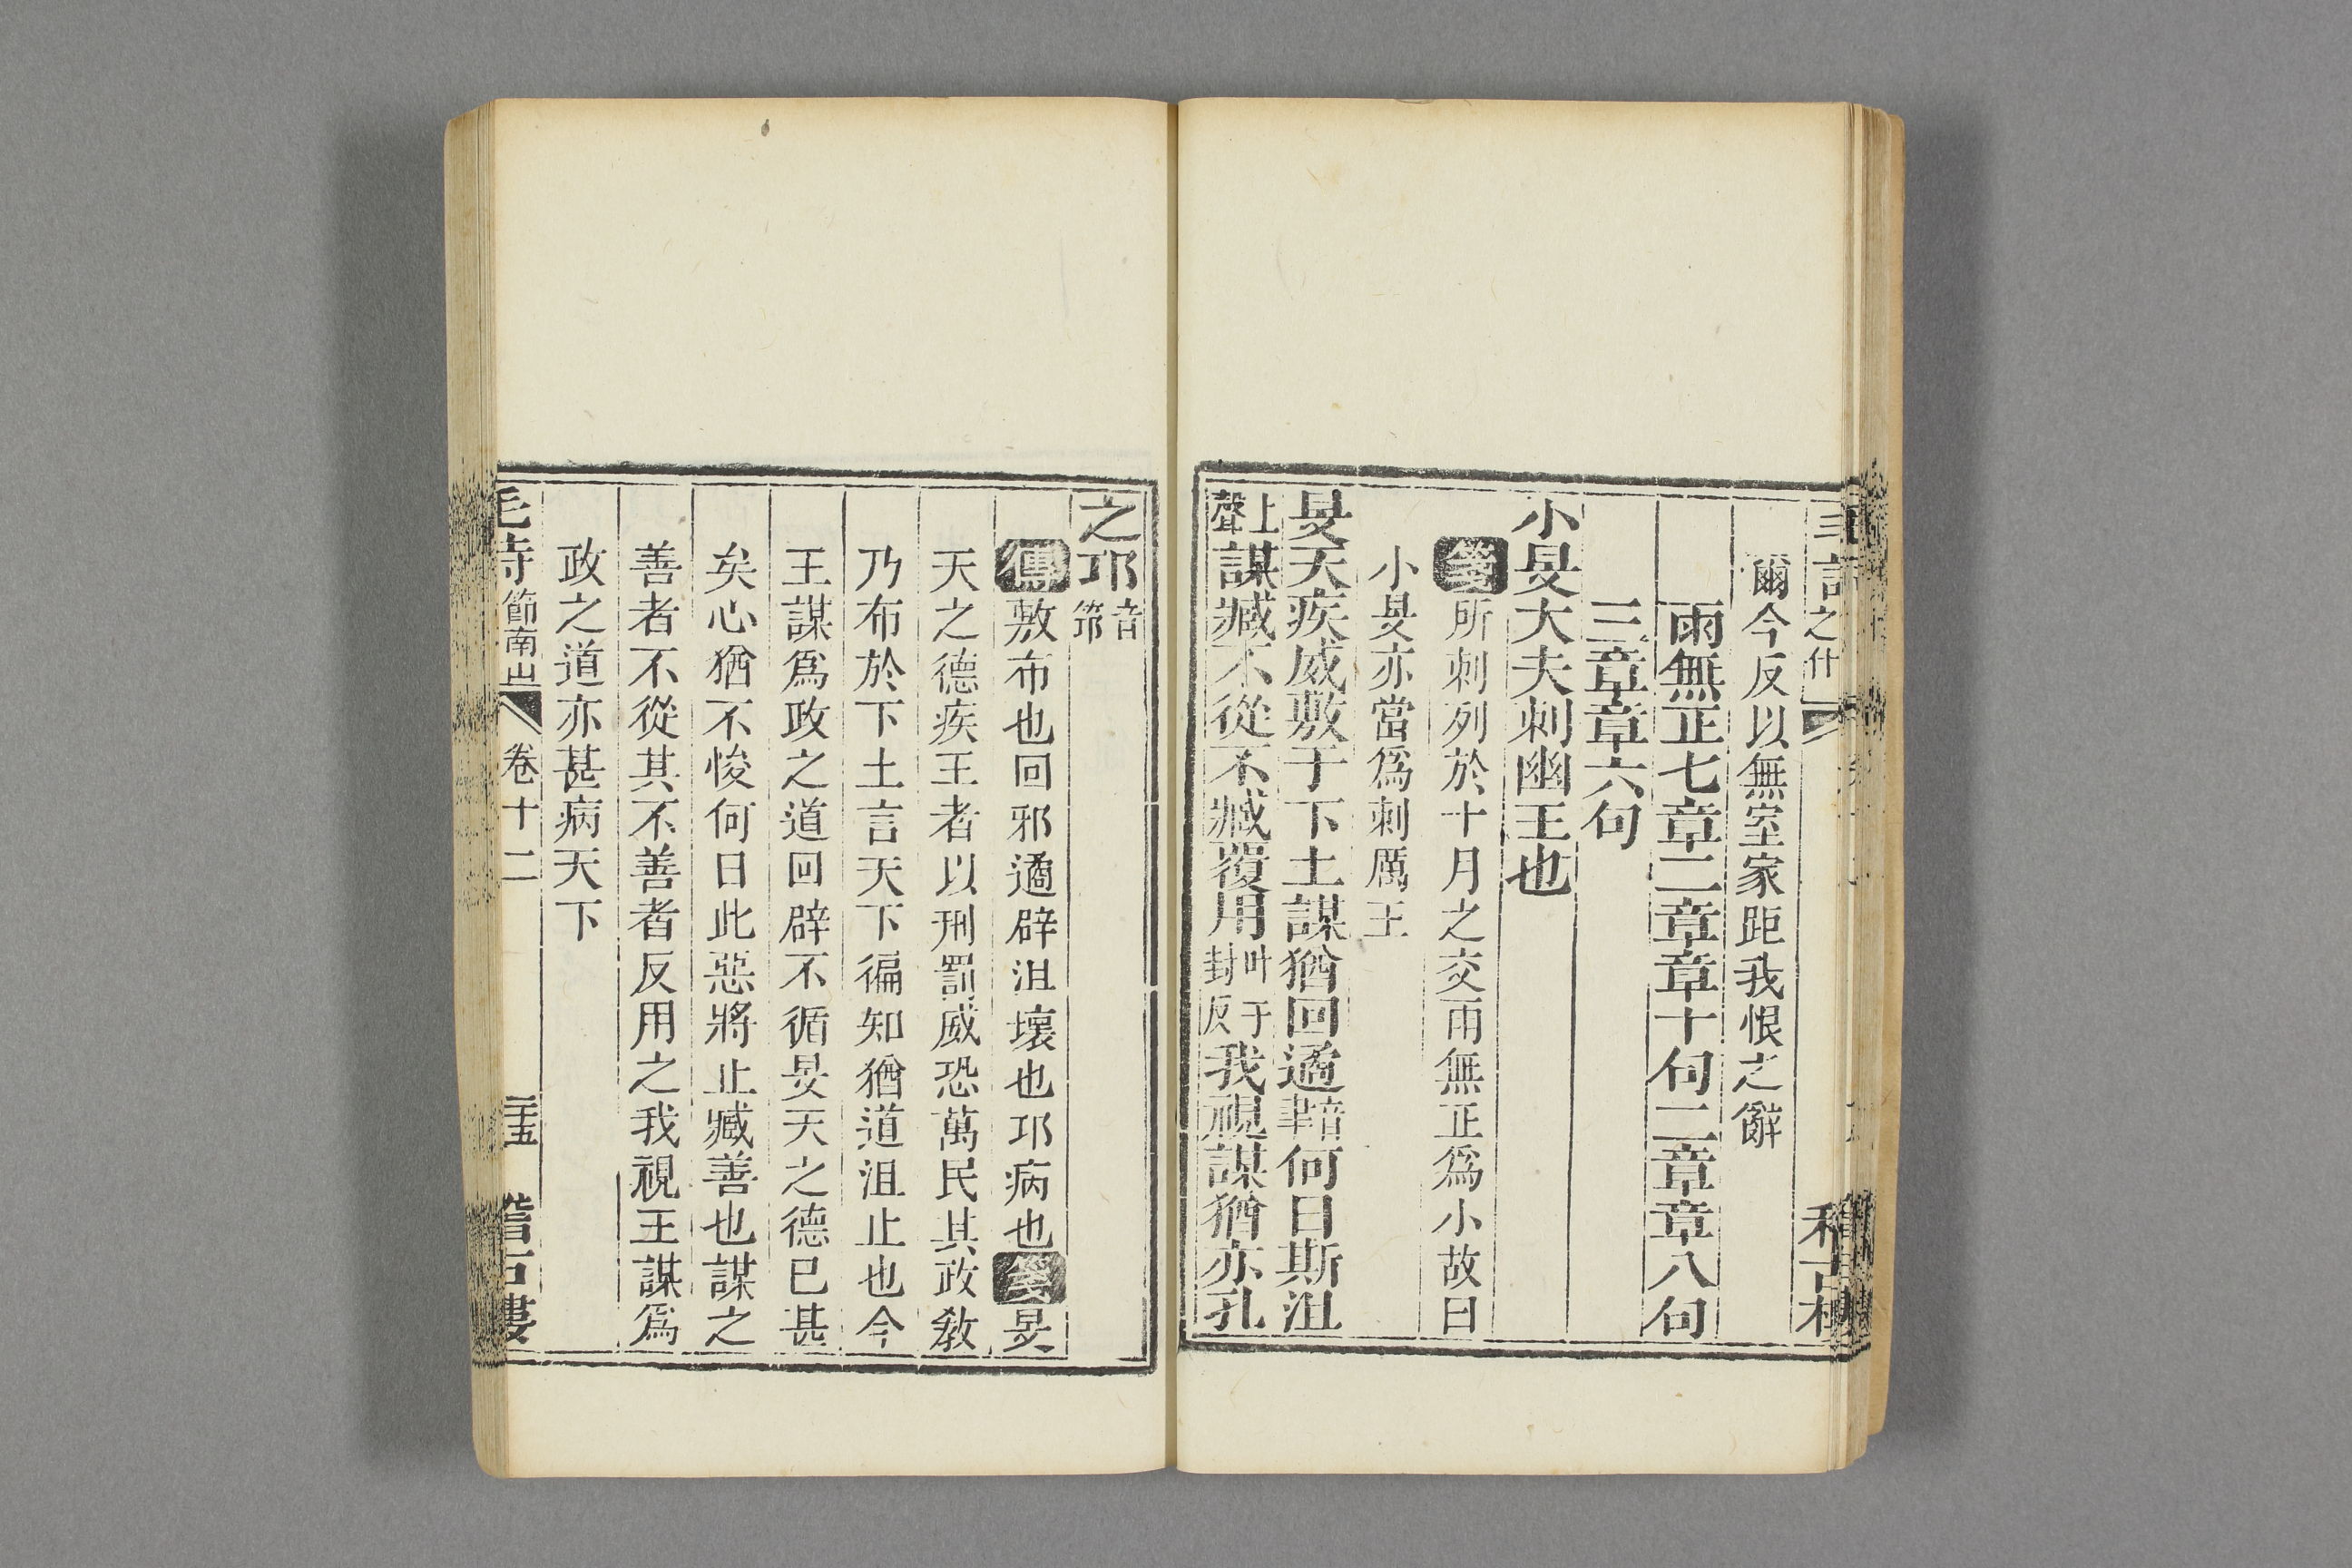 之什
爾今反以無室家距我恨之辭
雨無正七章二章章十句二章章八句
三章章六句
小旻大夫刺幽王也
箋所刺列於十月之交雨無正爲小故曰
小旻亦當爲刺厲王
旻天疾威敷于下土謀猶回遹聿音何日斯沮
上聲謀臧不從不臧覆用叶于封反我視謀猶亦孔
之邛音筇
傳敷布也回邪遹辟沮壞也邛病也箋旻
天之德疾王者以刑罰威恐萬民其政教
乃布於下土言天下徧知猶道沮止也今
王謀爲政之道回辟不循旻天之德已甚
矣心猶不悛何日此惡將止臧善也謀之
善者不從其不善者反用之我視王謀爲
政之道亦甚病天下
毛詩節南山 卷十二